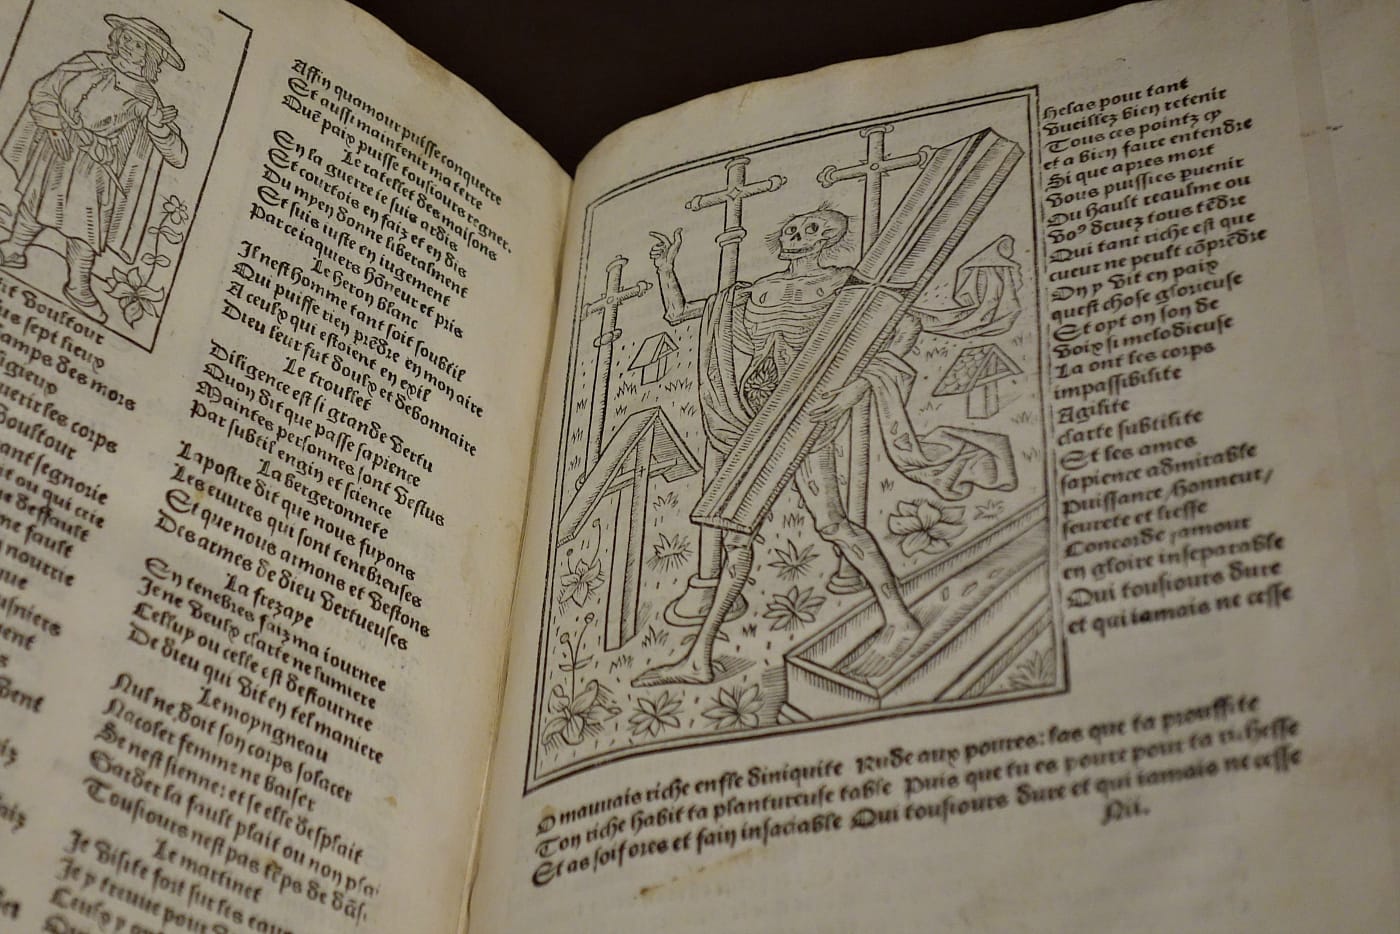 Affin quamour puisse conquerre
Et aussi maintenir ma terre
Que paix puisse tousiours regner.
Le ratellet des maisons
En la guerre ie suis ardis
Et courtois en faiz et en dis
Du myen donne liberalment
Et suis iuste en iugement
Par ce iaquiers hõneur et pris
Le heron blanc
Il nest homme tant soit soubtil
Qui puisse rien prẽdre en mon aire
A ceulx qui estoient en exil
Dieu leur fut doulx et debonnaire
Le troullet
Diligence est si grande vertu
Quon dit que passe sapience
Maintes personnes sont vestus
Par subtil engin et science
La bergeronnete
Lapostre dit que nous fuyons
Les euures qui sont tenebreuses
Et que nous armons et vestons
Des armes de dieu vertueuses
La frezaye
En tenebres faiz ma iournee
Je ne veulx clarte ne lumiere
Celluy ou celle est destournee
De dieu qui vit en tel maniere
Le moyngneau
Nul ne doit son corps solacer
Nacoler femme ne baiser
Se nest sienne: et se elle desplait
Garder la fault plait ou non
Tousiours nest pas tẽps de
Le martinet
Je visite fort sur les
Je y treuue pour
Ceulx y
voultour
sept lieux
champs des mors
querir les corps
voultour
segnorie
ou qui crie
deffault
fault
nourrie
Helas pour tant
vueillez bien retenir
Tous ces pointz cy
et a bien faire entendre
Si que apres mort
vous puissies puenir
Du hault reaulme ou
vo⁹ deuez tous tẽdre
Qui tant riche est que
cueur ne peult cõprẽdre
On y vit en paix
quest chose glorieuse
Et opt on son de
voix si melodieuse
La ont les corps
impassibilite
Agilite
clarte subtilite
Et les ames
sapience admirable
Puissance/honneur/
seurete et liesse
Concorde, amour
en gloire inseparable
Qui tousiours dure
et qui iamais ne cesse
O mauuais riche enfle diniquite Rude aux poures: las que ta prouffite
Ton riche habit ta plantureuse table Puis que tu es poure pour ta richesse
Et as soif ores et fain insaciable Qui tousiours dure et qui iamais ne cesse